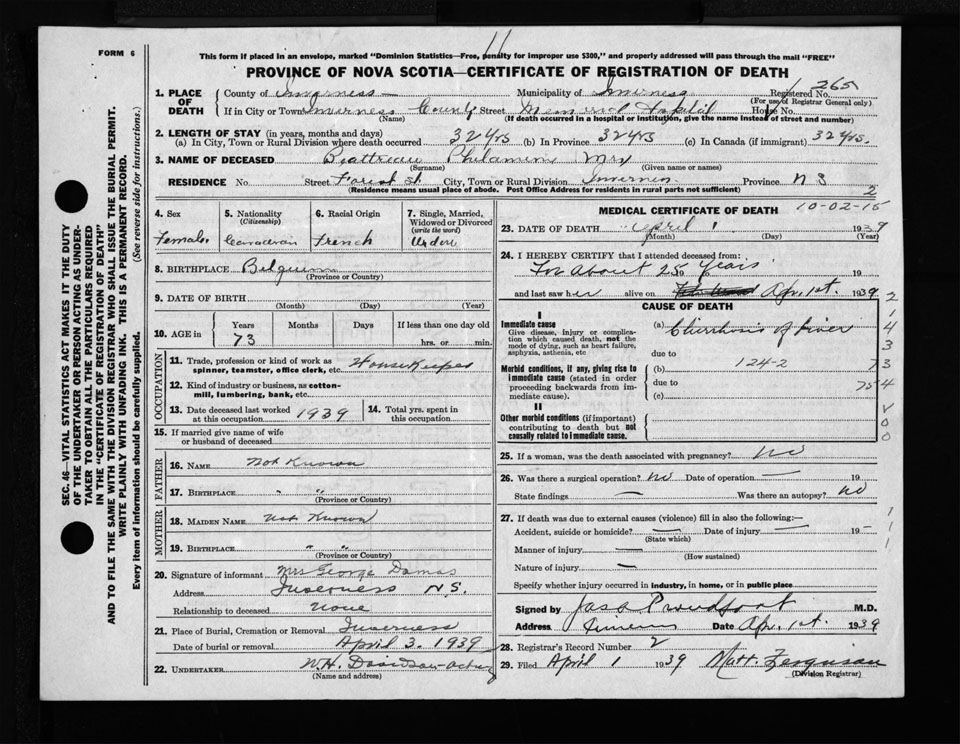 11
FORM 6
This form if placed in an envelope, marked "Dominion Statistics—Free, penalty for improper use $300," and properly addressed will pass through the mail "FREE"
PROVINCE OF NOVA SCOTIA—CERTIFICATE OF REGISTRATION OF DEATH
SEC. 46—VITAL STATISTICS ACT MAKES IT THE DUTY
OF THE UNDERTAKER OR PERSON ACTING AS UNDER-
TAKER TO OBTAIN ALL THE PARTICULARS REQUIRED
IN THE "CERTIFICATE OF REGISTRATION OF DEATH"
AND TO FILE THE SAME WITH THE DIVISION REGISTRAR WHO SHALL ISSUE THE BURIAL PERMIT.
WRITE PLAINLY WITH UNFADING INK. THIS IS A PERMANENT RECORD.
Every item of information should be carefully supplied. (See reverse side for instructions.)
1. PLACE OF DEATH County of Inverness Municipality of Inverness Registered No. 265
(For use of Registrar General only)
If in City or Town Inverness County Street Memorial Hospital House No.
(Name) (If death occurred in a hospital or institution, give the name instead of street and number)
2. LENGTH OF STAY (in years, months and days)
(a) In City, Town or Rural Division where death occurred 32 yrs (b) In Province 32 yrs (c) In Canada (if immigrant) 32 yrs.
3. NAME OF DECEASED Philamine Mrs
(Surname) (Given name or names)
RESIDENCE No. Street Forest St City, Town or Rural Division Inverness Province N S
(Residence means usual place of abode. Post Office Address for residents in rural parts not sufficient) 2
4. Sex Female
5. Nationality (Citizenship) Canadian
6. Racial Origin French
7. Single, Married, Widowed or Divorced (write the word) Widow
8. BIRTHPLACE Belguim
(Province or Country)
9. DATE OF BIRTH
(Month) (Day) (Year)
10. AGE in Years 73 Months Days If less than one day old hrs. or min.
OCCUPATION
11. Trade, profession or kind of work as spinner, teamster, office clerk, etc. HouseKeeper
12. Kind of industry or business, as cotton-mill, lumbering, bank, etc.
13. Date deceased last worked at this occupation 1939 14. Total yrs. spent in this occupation
15. If married give name of wife or husband of deceased
FATHER
16. NAME Not Known
17. BIRTHPLACE " "
(Province or Country)
MOTHER
18. MAIDEN NAME Not Known
19. BIRTHPLACE " "
(Province or Country)
20. Signature of informant Mrs George Damas
Address Inverness N S.
Relationship to deceased None
21. Place of Burial, Cremation or Removal Inverness
Date of burial or removal April 3. 1939
22. UNDERTAKER W.H. Davidson-acting
(Name and address)
MEDICAL CERTIFICATE OF DEATH
10-02-15
23. DATE OF DEATH April 1 1939
(Month) (Day) (Year)
24. I HEREBY CERTIFY that I attended deceased from:
For About 25 Years 19
and last saw her alive on Apr. 1st. 1939
CAUSE OF DEATH
I
Immediate cause
Give disease, injury or complication which caused death, not the mode of dying, such as heart failure, asphyxia, asthenia, etc
(a) Cirrhosis of Liver
due to
Morbid conditions, if any, giving rise to immediate cause (stated in order proceeding backwards from immediate cause).
(b) 124-2
due to
(c)
II
Other morbid conditions (if important) contributing to death but not causally related to immediate cause.
25. If a woman, was the death associated with pregnancy? No
26. Was there a surgical operation? No Date of operation — 19
State findings — Was there an autopsy? No
27. If death was due to external causes (violence) fill in also the following:—
Accident, suicide or homicide? — Date of injury — 19 —
(State which)
Manner of injury —
(How sustained)
Nature of injury —
Specify whether injury occurred in industry, in home, or in public place
Signed by Jas A Proudfoot M.D.
Address Date Apr. 1st. 1939
28. Registrar's Record Number 2
29. Filed April 1 1939 Matt. Ferguson
(Division Registrar)